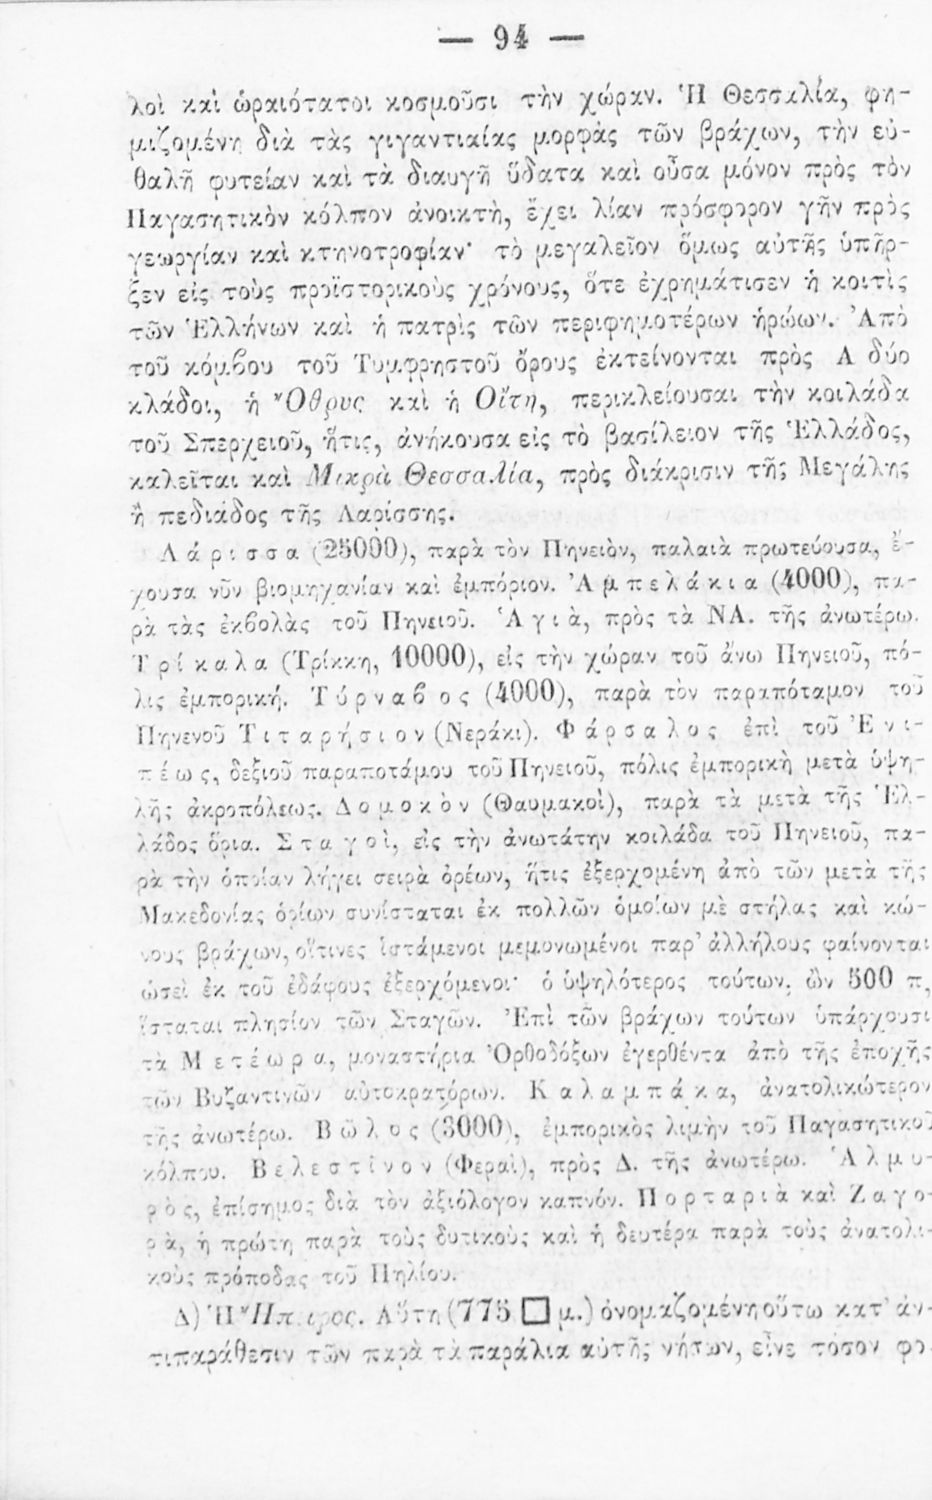 — 94 —
λοὶ καὶ ὡραιότατοι κοσμοῦσι τὴν χώραν. Ἡ Θεσσαλία, φη-
μιζομένη διὰ τὰς γιγαντιαίας μορφὰς τῶν βράχων, τὴν εὐ-
θαλῆ φυτείαν καὶ τὰ διαυγῆ ὕδατα καὶ οὖσα μόνον πρὸς τὸν
Παγασητικὸν κόλπον ἀνοικτὴ, ἔχει λίαν πρόσφορον γῆν πρὸς
γεωργίαν καὶ κτηνοτροφίαν· τὸ μεγαλεῖον ὅμως αὐτῆς ὑπῆρ-
ξεν εἰς τοὺς προϊστορικοὺς χρόνους, ὅτε ἐχρημάτισεν ἡ κοιτὶς
τῶν Ἑλλήνων καὶ ἡ πατρὶς τῶν περιφημοτέρων ἡρώων. Ἀπὸ
τοῦ κόμβου τοῦ Τυμφρηστοῦ ὄρους ἐκτείνονται πρὸς Α δύο
κλάδοι, ἡ Ὄθρυς καὶ ἡ Οἴτη, περικλείουσαι τὴν κοιλάδα
τοῦ Σπερχειοῦ, ἥτις, ἀνήκουσα εἰς τὸ βασίλειον τῆς Ἑλλάδος,
καλεῖται καὶ Μικρὰ Θεσσαλία, πρὸς διάκρισιν τῆς Μεγάλης
ἢ πεδιάδος τῆς Λαρίσσης.
Λάρισσα (25000), παρὰ τὸν Πηνειὸν, παλαιὰ πρωτεύουσα, ἔ-
χουσα νῦν βιομηχανίαν καὶ ἐμπόριον. Ἀμπελάκια (4000), πα-
ρὰ τὰς ἐκβολὰς τοῦ Πηνειοῦ. Ἁγιὰ, πρὸς τὰ ΝΑ. τῆς ἀνωτέρω.
Τρίκαλα (Τρίκκη, 10000), εἰς τὴν χώραν τοῦ ἄνω Πηνειοῦ, πό-
λις ἐμπορική. Τύρναβος (4000), παρὰ τὸν παραπόταμον τοῦ
Πηνενοῦ Τιταρήσιον (Νεράκι). Φάρσαλος ἐπὶ τοῦ Ἐνι-
πέως, δεξιοῦ παραποτάμου τοῦ Πηνειοῦ, πόλις ἐμπορικὴ μετὰ ὑψη-
λῆς ἀκροπόλεως. Δομοκὸν (Θαυμακοὶ), παρὰ τὰ μετὰ τῆς Ἑλ-
λάδος ὅρια. Σταγοὶ, εἰς τὴν ἀνωτάτην κοιλάδα τοῦ Πηνειοῦ, πα-
ρὰ τὴν ὁποίαν λήγει σειρὰ ὀρέων, ἥτις ἐξερχομένη ἀπὸ τῶν μετὰ τῆς
Μακεδονίας ὁρίων συνίσταται ἐκ πολλῶν ὁμοίων μὲ στήλας καὶ κώ-
νους βράχων, οἵτινες ἱστάμενοι μεμονωμένοι παρ' ἀλλήλους φαίνονται
ὡσεὶ ἐκ τοῦ ἐδάφους ἐξερχόμενοι· ὁ ὑψηλότερος τούτων, ὢν 500 π,
ἵσταται πλησίον τῶν Σταγῶν. Ἐπὶ τῶν βράχων τούτων ὑπάρχουσι
τὰ Μετέωρα, μοναστήρια Ὀρθοδόξων ἐγερθέντα ἀπὸ τῆς ἐποχῆς
τῶν Βυζαντινῶν αὐτοκρατόρων. Καλαμπάκα, ἀνατολικώτερον
τῆς ἀνωτέρω. Βῶλος (3000), ἐμπορικὸς λιμὴν τοῦ Παγασητικοῦ
κόλπου. Βελεστῖνον (Φεραὶ), πρὸς Δ. τῆς ἀνωτέρω. Ἁλμυ-
ρὸς, ἐπίσημος διὰ τὸν ἀξιόλογον καπνόν. Πορταριὰ καὶ Ζαγο-
ρὰ, ἡ πρώτη παρὰ τοὺς δυτικοὺς καὶ ἡ δευτέρα παρὰ τοὺς ἀνατολι-
κοὺς πρόποδας τοῦ Πηλίου.
Δ) Ἡ Ἤπειρος. Αὕτη (775 □ μ.) ὀνομαζομένη οὕτω κατ' ἀν-
τιπαράθεσιν τῶν παρὰ τὰ παράλια αὐτῆς νήσων, εἶνε τόσον φο-